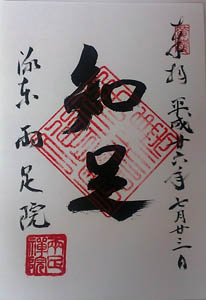 奉拝 平成廿六年七月廿三日
知足
洛東 両足院